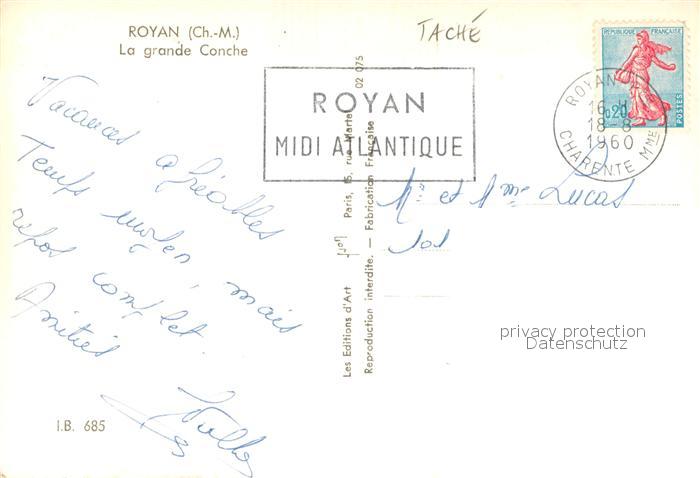 ROYAN (Ch.-M.)
La grande Conche
TACHÉ
ROYAN
MIDI ATLANTIQUE
REPUBLIQUE FRANÇAISE
0,20
POSTES
ROYAN
16 H
18-8
1960
CHARENTE Mme
Vacances agréables
Temps moyen, mais
repos complet.
Amitiés
Mr et Mme Lucas
101
Les Editions d'Art
Paris, 15, rue Martel
02 075
Reproduction interdite. — Fabrication Française
privacy protection
Datenschutz
I.B. 685